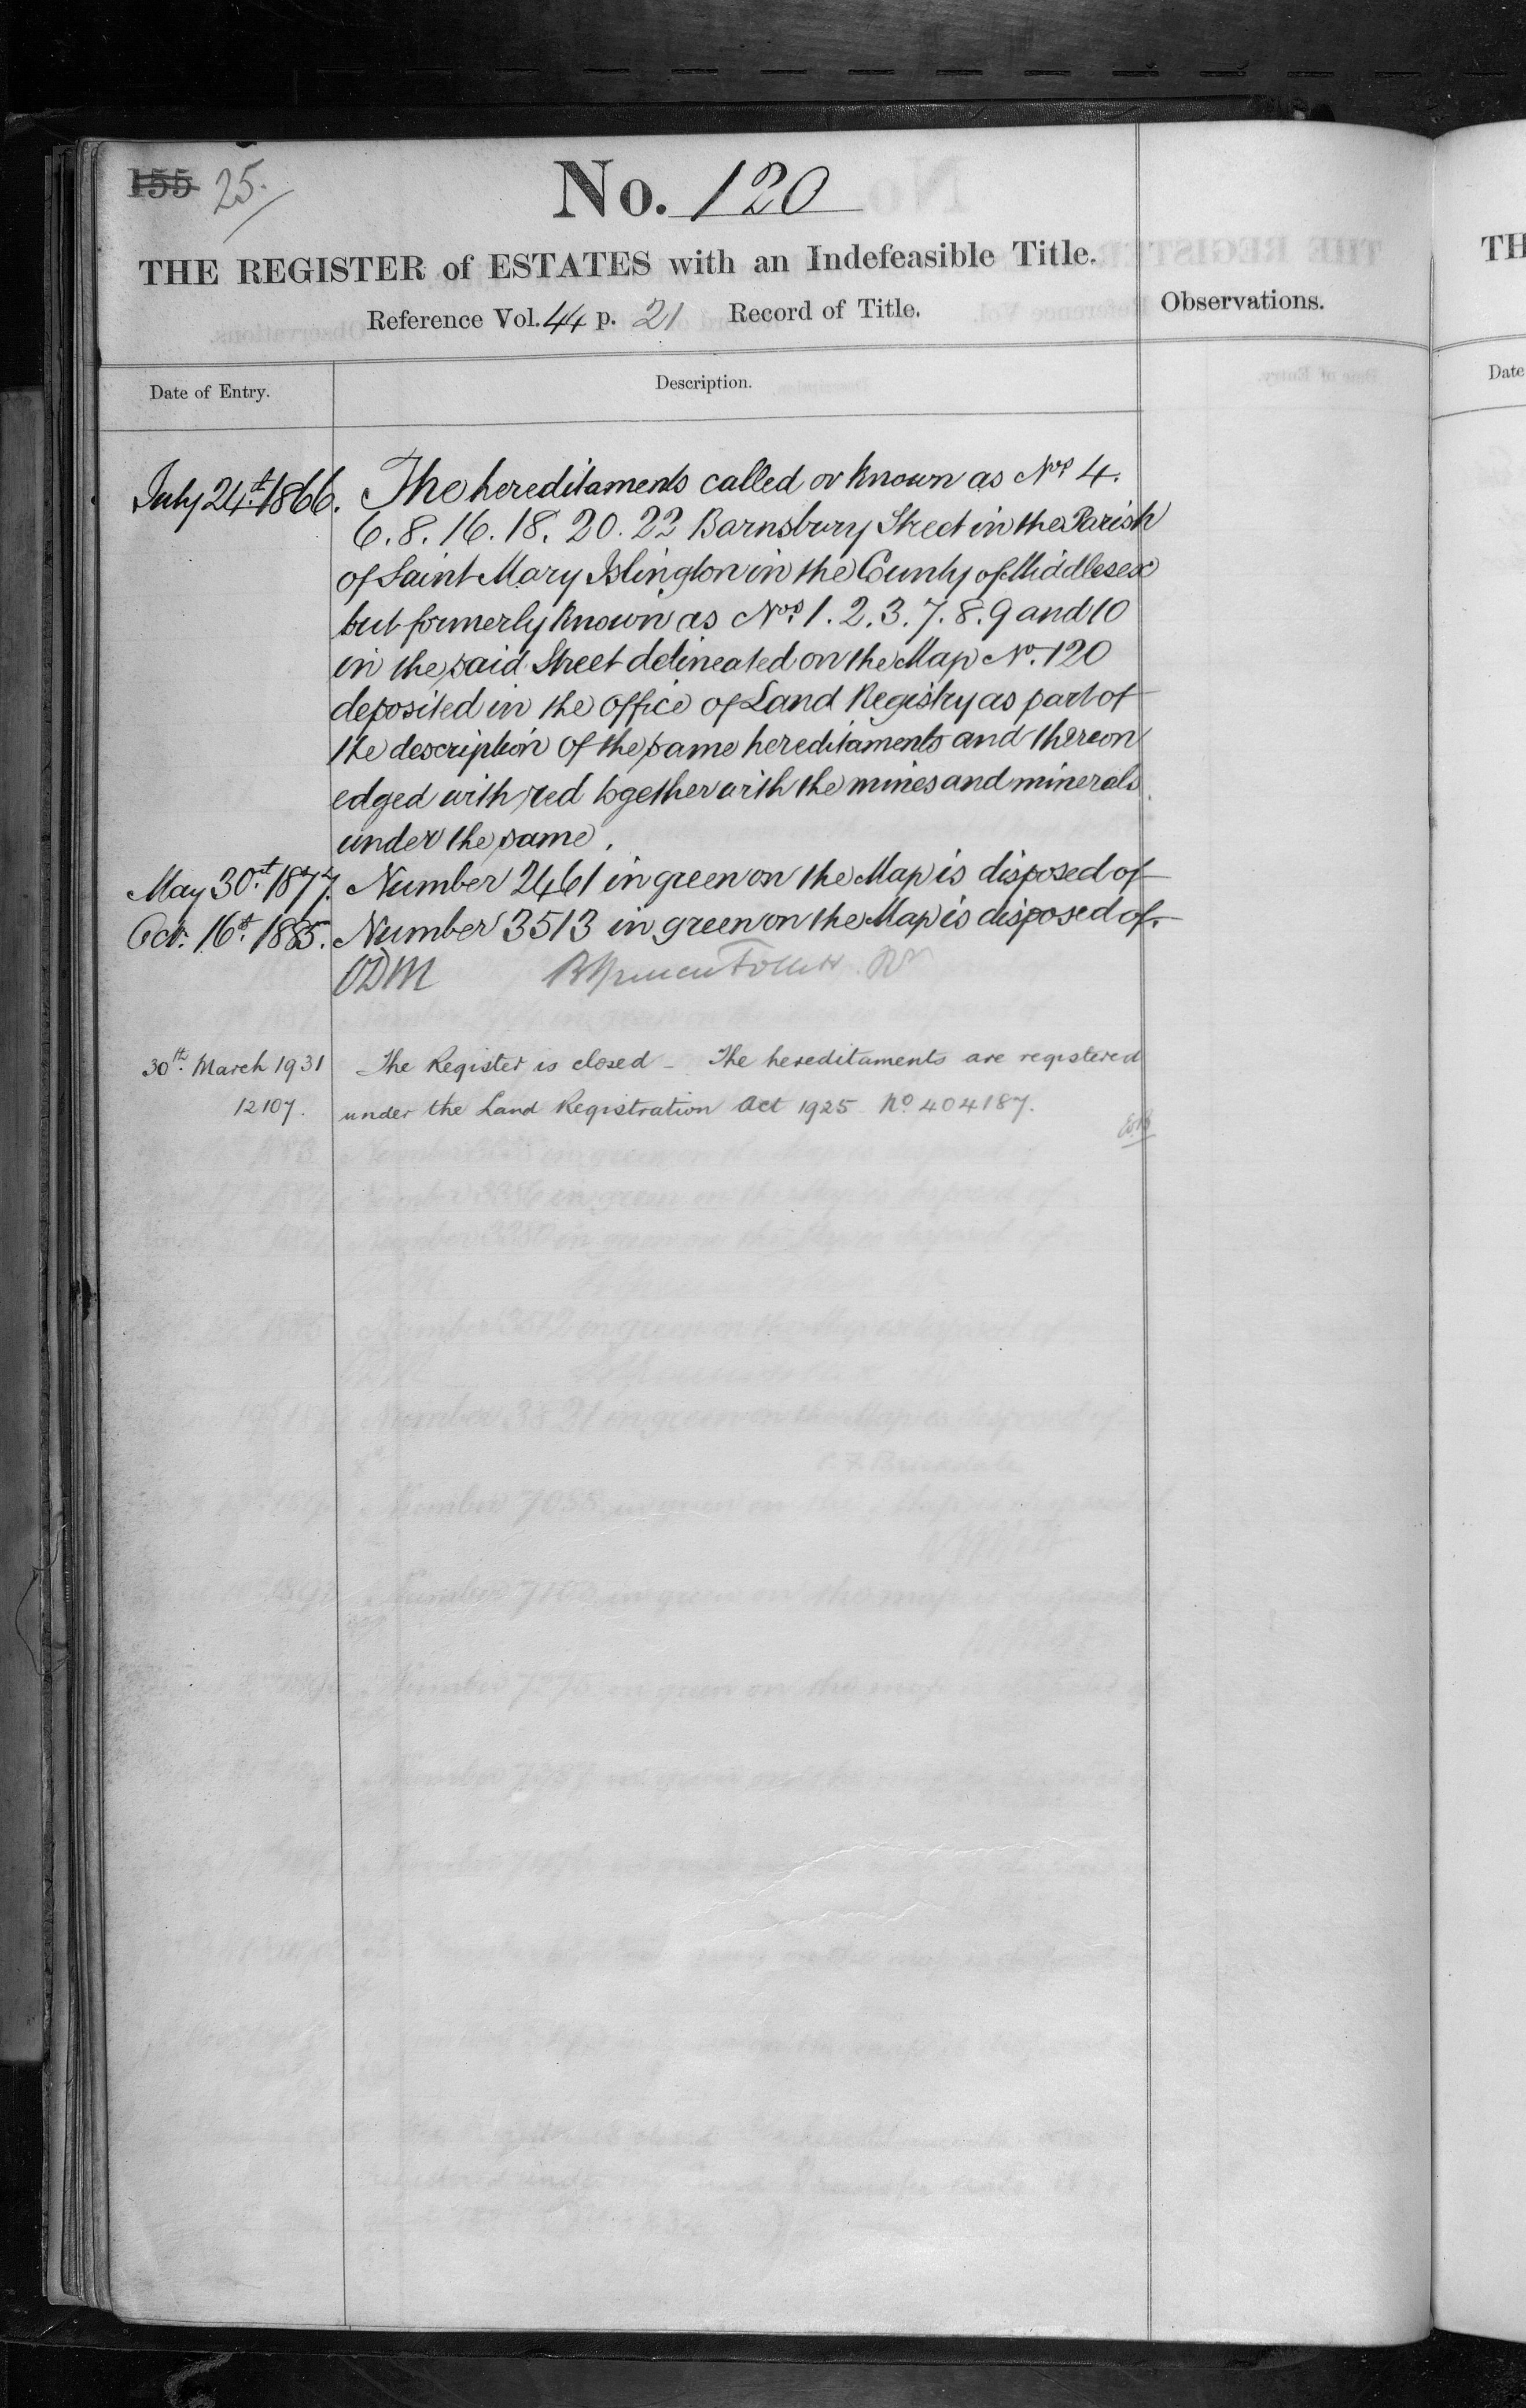 155 25.
No. 120
THE REGISTER of ESTATES with an Indefeasible Title.
Reference Vol. 44 p. 21 Record of Title.
Observations.
Date of Entry.
Description.
July 24th 1866. The hereditaments called or known as Nos 4.
6. 8. 16. 18. 20. 22 Barnsbury Street in the Parish
of Saint Mary Islington in the County of Middlesex
but formerly known as Nos 1. 2. 3. 7. 8. 9 and 10
in the said Street delineated on the Map No. 120
deposited in the office of Land Registry as part of
the description of the same hereditaments and thereon
edged with red together with the mines and minerals
under the same.
May 30th 1877. Number 2461 in green on the Map is disposed of
Oct. 16th 1885. Number 3513 in green on the Map is disposed of.
ODM
30th March 1931 The Register is closed – The hereditaments are registered
12107. under the Land Registration Act 1925 No 404187.
TH
Date